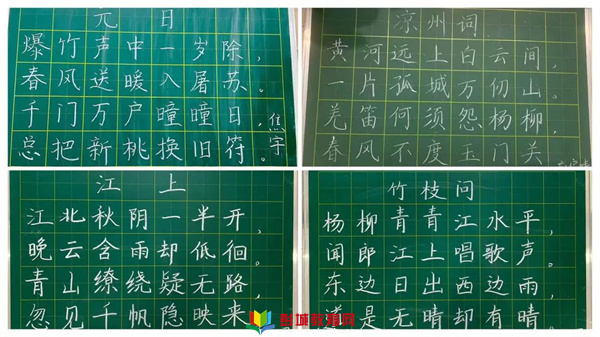 元日
爆竹声中一岁除,
春风送暖入屠苏。
千门万户瞳瞳日,
总把新桃换旧符。
焦宇
凉州词
黄河远上白云间,
一片孤城万仞山。
羌笛何须怨杨柳,
春风不度玉门关
江上
江北秋阴一半开,
晚云含雨却低徊。
青山缭绕疑无路,
忽见千帆隐映来
竹枝问
杨柳青青江水平,
闻郎江上唱歌声。
东边日出西边雨,
道是无晴却有晴。